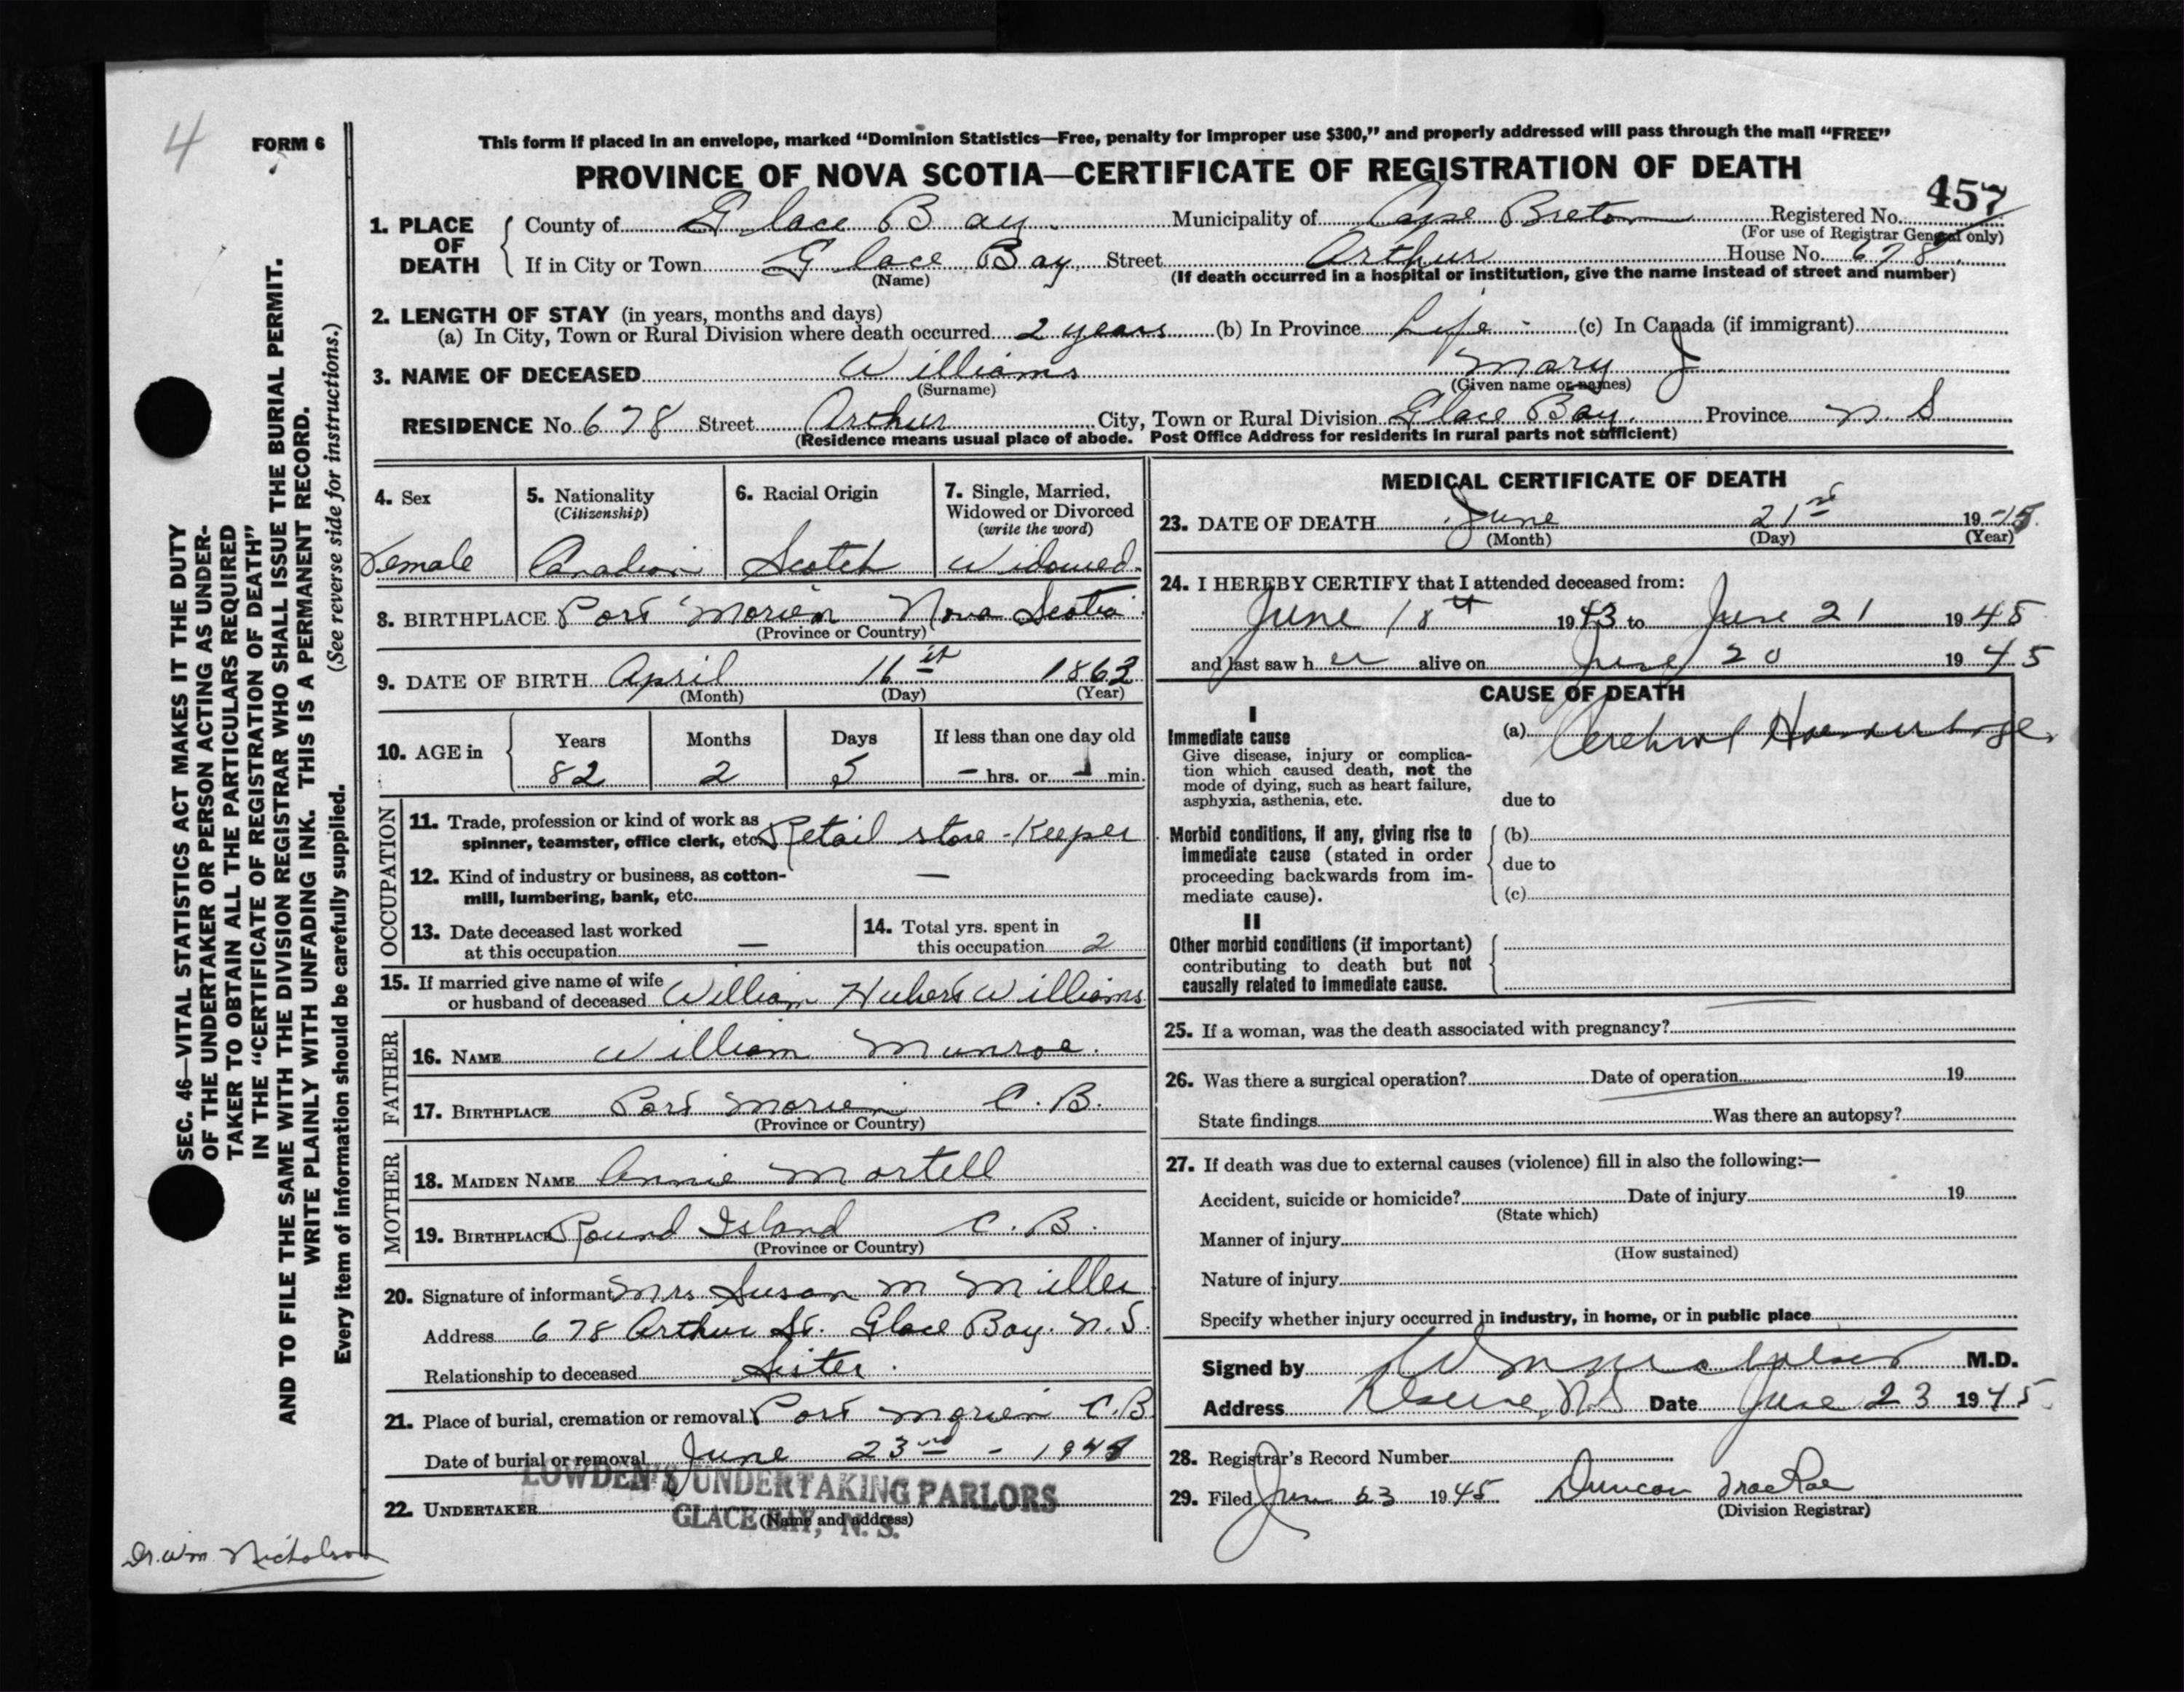 4
FORM 6
This form if placed in an envelope, marked “Dominion Statistics—Free, penalty for improper use $300,” and properly addressed will pass through the mail “FREE”
PROVINCE OF NOVA SCOTIA—CERTIFICATE OF REGISTRATION OF DEATH
457
1. PLACE OF DEATH
County of Glace Bay Municipality of Cape Breton Registered No.
(For use of Registrar General only)
If in City or Town Glace Bay Street Arthur House No. 678
(Name) (If death occurred in a hospital or institution, give the name instead of street and number)
2. LENGTH OF STAY (in years, months and days)
(a) In City, Town or Rural Division where death occurred 2 years (b) In Province Life - (c) In Canada (if immigrant)
3. NAME OF DECEASED Williams Mary J
(Surname) (Given name or names)
RESIDENCE No. 678 Street Arthur City, Town or Rural Division Glace Bay. Province N S
(Residence means usual place of abode. Post Office Address for residents in rural parts not sufficient)
4. Sex
Female
5. Nationality
(Citizenship)
Canadian
6. Racial Origin
Scotch
7. Single, Married,
Widowed or Divorced
(write the word)
Widowed.
8. BIRTHPLACE Port Morien Nova Scotia
(Province or Country)
9. DATE OF BIRTH April 16th 1863
(Month) (Day) (Year)
10. AGE in
Years Months Days If less than one day old
82 2 5 - hrs. or - min.
OCCUPATION
11. Trade, profession or kind of work as
spinner, teamster, office clerk, etc. Retail store-Keeper
12. Kind of industry or business, as cotton- —
mill, lumbering, bank, etc.
13. Date deceased last worked
at this occupation —
14. Total yrs. spent in
this occupation 2
15. If married give name of wife
or husband of deceased William Hubert Williams
FATHER
16. NAME William Munroe.
17. BIRTHPLACE Port Morien C.B.
(Province or Country)
MOTHER
18. MAIDEN NAME Annie Martell
19. BIRTHPLACE Round Island C.B.
(Province or Country)
20. Signature of informant Mrs Susan M Miller
Address 678 Arthur St. Glace Bay. N.S.
Relationship to deceased Sister.
21. Place of burial, cremation or removal Port Morien C.B
Date of burial or removal June 23rd - 1945
22. UNDERTAKER
(Name and address)
LOWDEN'S UNDERTAKING PARLORS
GLACE BAY, N. S.
MEDICAL CERTIFICATE OF DEATH
23. DATE OF DEATH June 21st 1945
(Month) (Day) (Year)
24. I HEREBY CERTIFY that I attended deceased from:
June 18th 1943 to June 21 1945
and last saw her alive on June 20 1945
CAUSE OF DEATH
I
Immediate cause
Give disease, injury or complica-
tion which caused death, not the
mode of dying, such as heart failure,
asphyxia, asthenia, etc.
(a) Cerebral Haemorrhage.
due to
Morbid conditions, if any, giving rise to
immediate cause (stated in order
proceeding backwards from im-
mediate cause).
(b)
due to
(c)
II
Other morbid conditions (if important)
contributing to death but not
causally related to immediate cause.
25. If a woman, was the death associated with pregnancy?
26. Was there a surgical operation? Date of operation 19
State findings Was there an autopsy?
27. If death was due to external causes (violence) fill in also the following:—
Accident, suicide or homicide? Date of injury 19
(State which)
Manner of injury
(How sustained)
Nature of injury
Specify whether injury occurred in industry, in home, or in public place
Signed by M.D.
Address Reserve, N.S Date June 23 1945
28. Registrar's Record Number
29. Filed June 23 1945 Duncan MacRae
(Division Registrar)
SEC. 46—VITAL STATISTICS ACT MAKES IT THE DUTY
OF THE UNDERTAKER OR PERSON ACTING AS UNDER-
TAKER TO OBTAIN ALL THE PARTICULARS REQUIRED
IN THE “CERTIFICATE OF REGISTRATION OF DEATH”
AND TO FILE THE SAME WITH THE DIVISION REGISTRAR WHO SHALL ISSUE THE BURIAL PERMIT.
WRITE PLAINLY WITH UNFADING INK. THIS IS A PERMANENT RECORD.
Every item of information should be carefully supplied. (See reverse side for instructions.)
Dr. Wm Nicholson